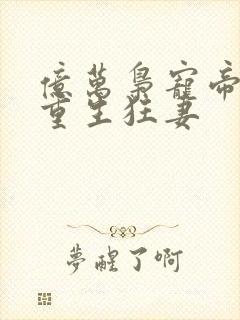 億萬梟寵帝
重生狂妻
夢醒了啊